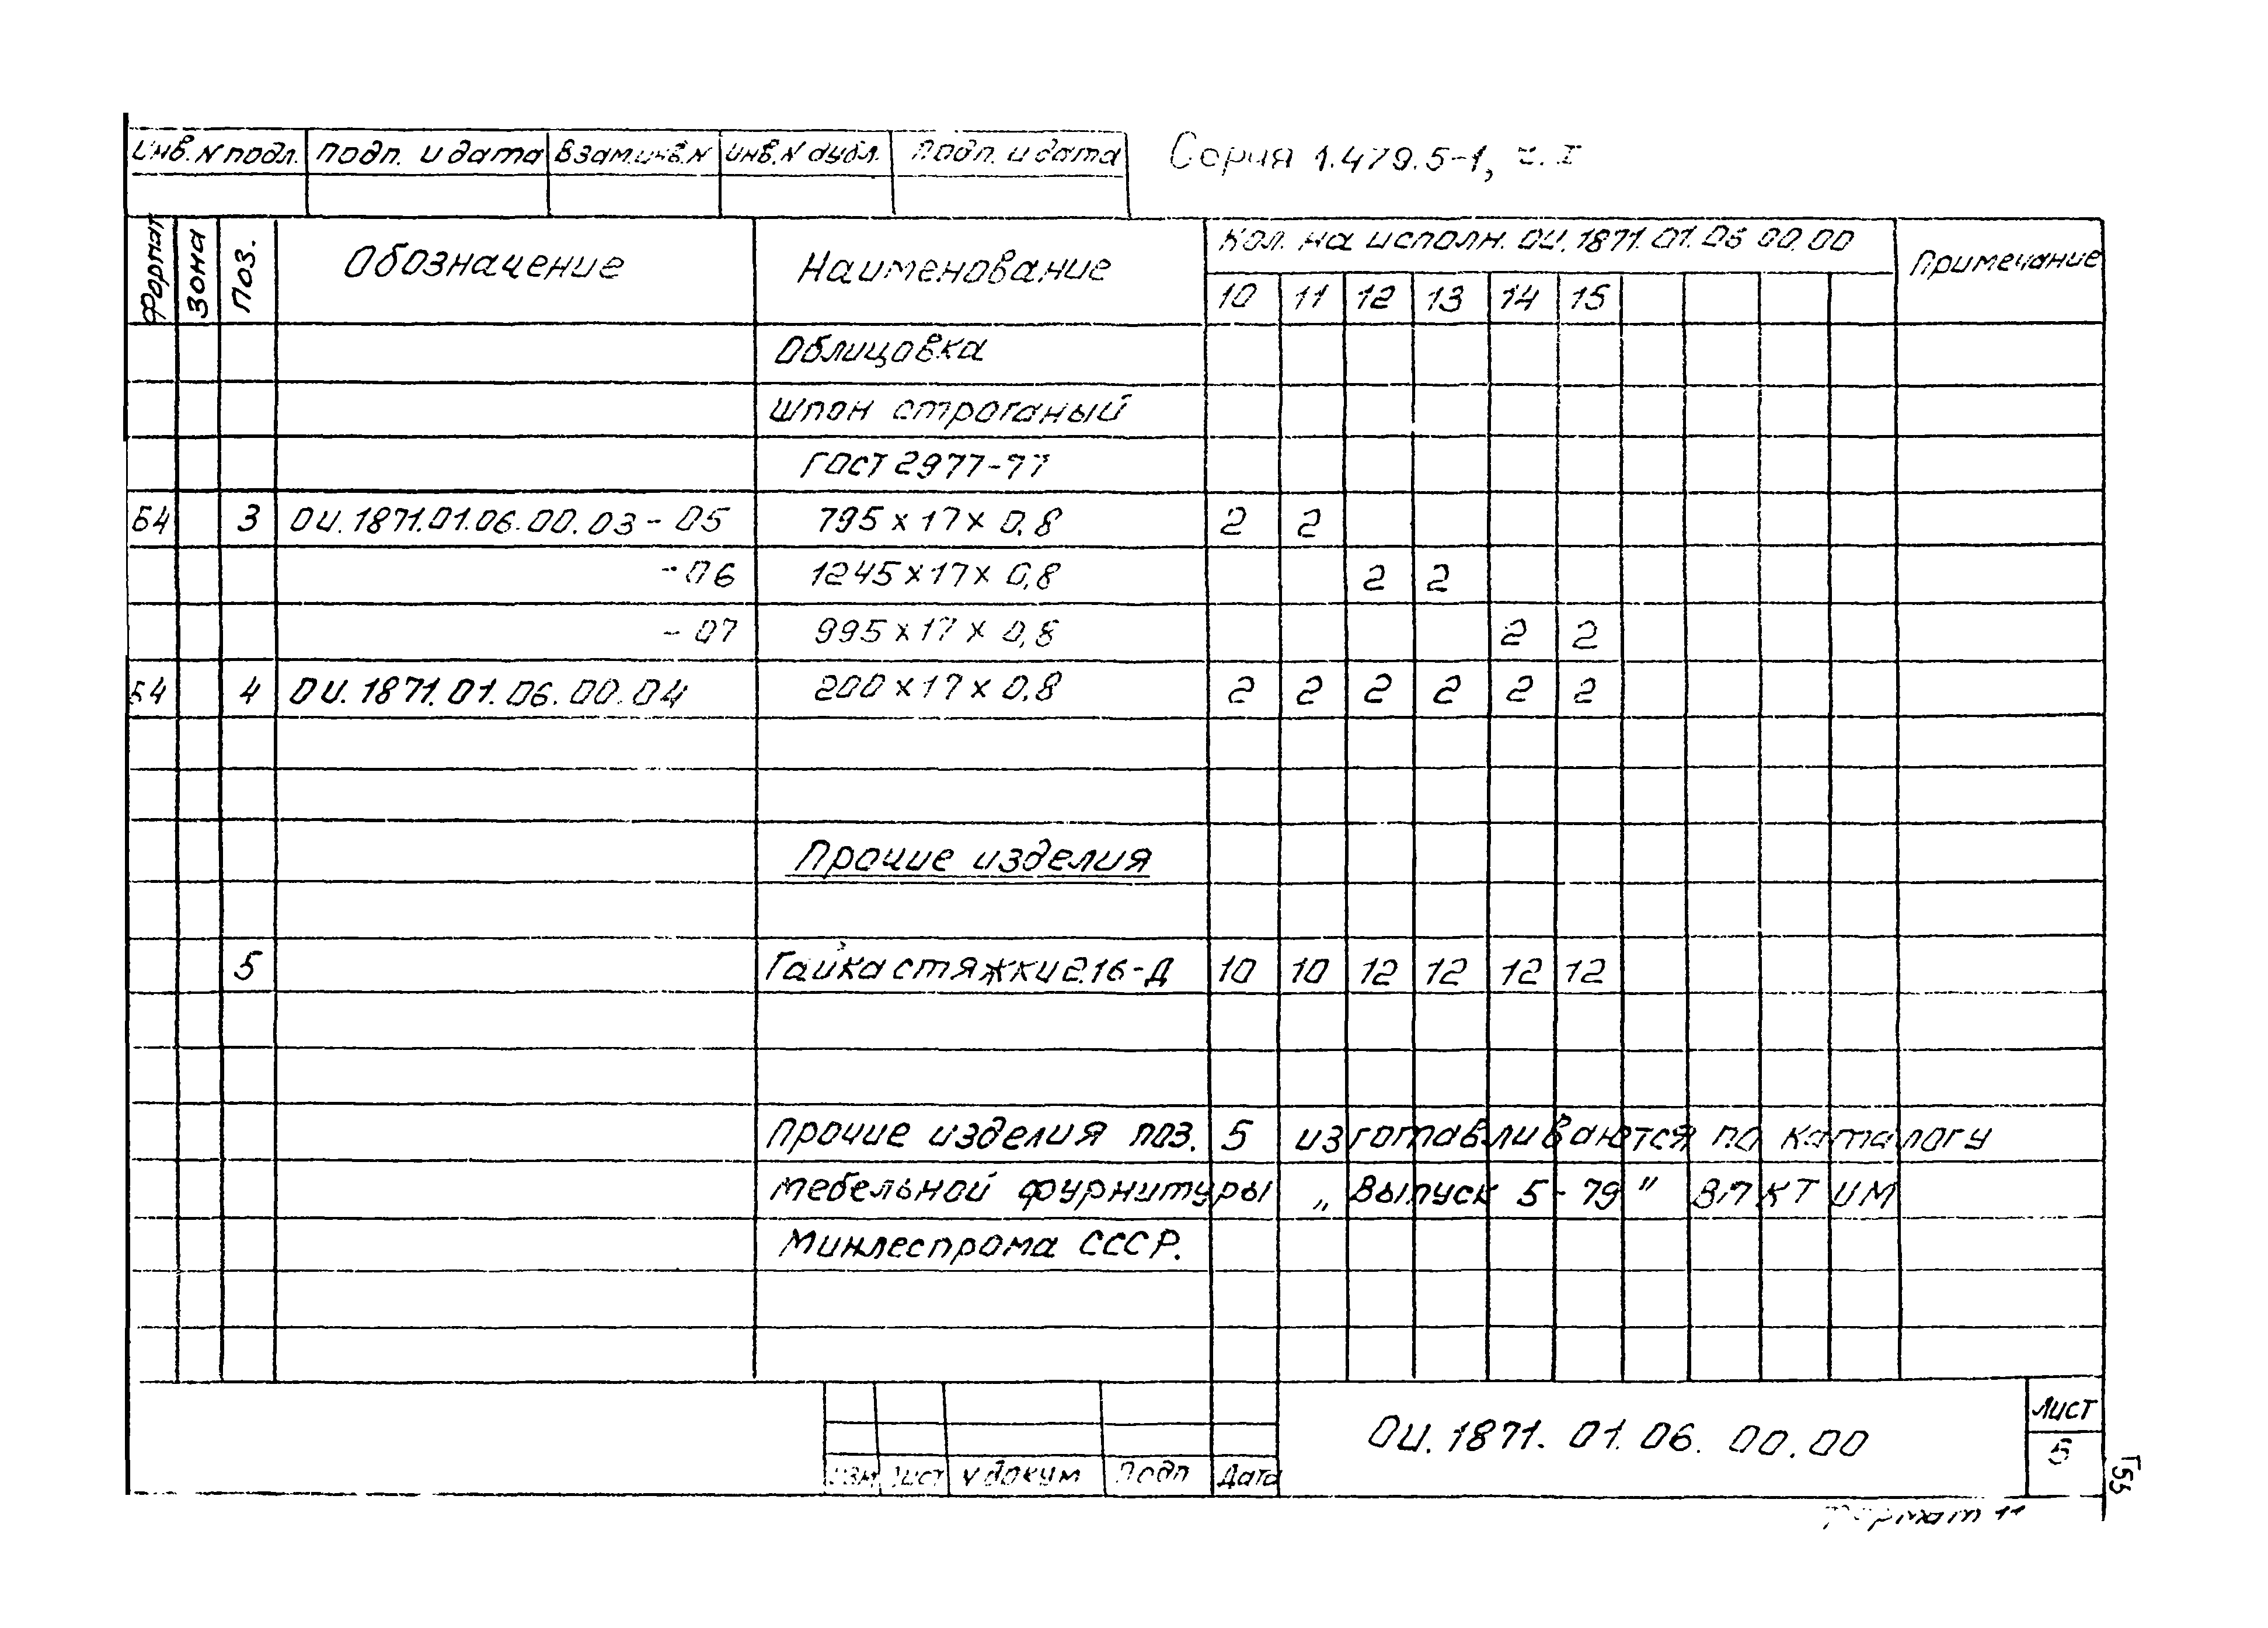 Инв. N подл. Подп. и дата Взам.инв.N Инв.N дубл. Подп. и дата Серия 1.479.5-1, ч. I
Формат Зона Поз. Обозначение Наименование Кол. на исполн. ОИ.1871.01.06 00.00 Примечание
10 11 12 13 14 15
Облицовка
Шпон строганый
ГОСТ 2977-77
Б4 3 ОИ.1871.01.06.00.03-05 795x17x0.8 2 2
-06 1245x17x0,8 2 2
-07 995x17x0,8 2 2
Б4 4 ОИ.1871.01.06.00.04 200x17x0.8 2 2 2 2 2 2
Прочие изделия
5 Гайка стяжки 2.16-Д 10 10 12 12 12 12
Прочие изделия поз. 5 изготавливаются по каталогу
мебельной фурнитуры „Выпуск 5-79" ВПКТИМ
Минлеспрома СССР.
ОИ.1871.01.06.00.00 Лист
5
Изм. Лист N докум Подп Дата
Формат 11